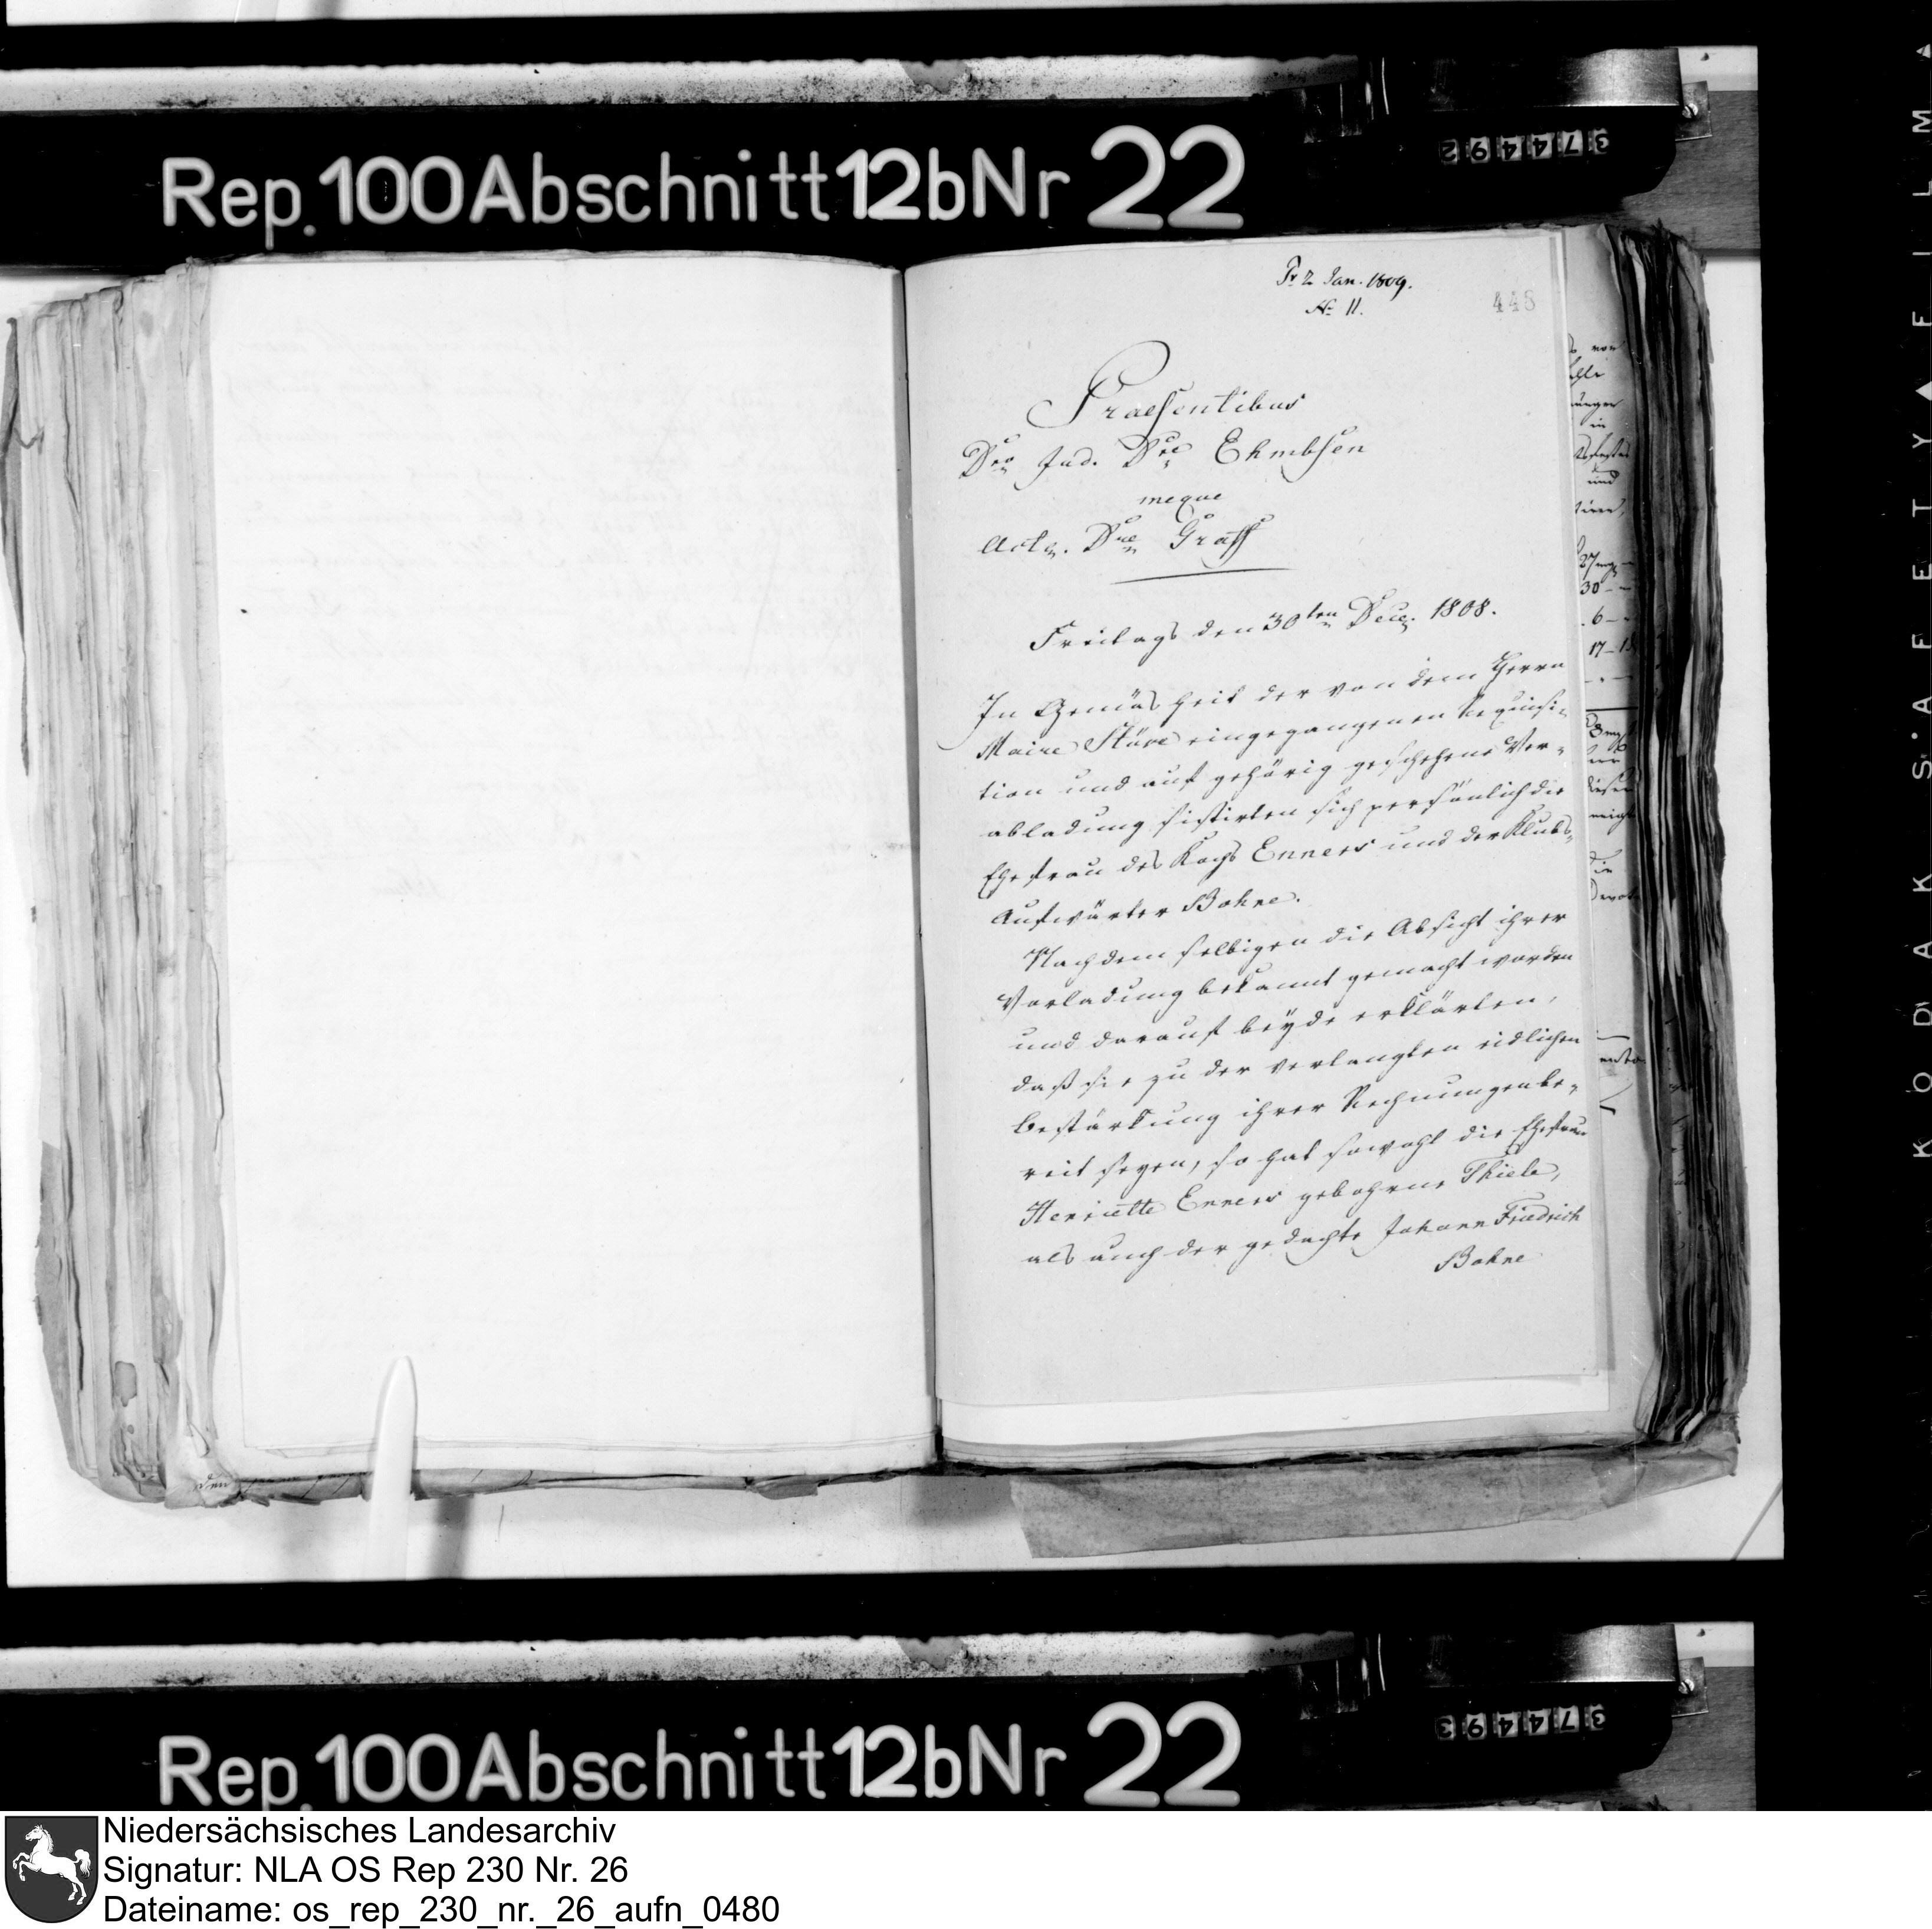 Rep. 100 Abschnitt 12b Nr 22
374492
Pr 2 Jan. 1809.
No 11.
448
Praesentibus
Dno Jud. Dre Ehmbsen
meque
Actu. Dre Graff
Freitags den 30ten Dece. 1808.
In Gemäsheit der von dem Herrn
Maire Stüve eingegangenen Requisi-
tion und auf gehörig geschehene Ver-
abladung sistirten sich persönlich die
Ehefrau des Kochs Enners und der Klubs-
Aufwärter Bohne.
Nachdem selbigen die Absicht ihrer
Vorladung bekannt gemacht worden
und darauf beyde erklärten,
daß sie zu der verlangten eidlichen
Bestärkung ihrer Rechnungen be-
reit seyen, so hat sowohl die Ehefrau
Henriette Enners gebohrne Thiele,
als auch der gedachte Johann Friedrich
Bohne
von
und
27 mg
30
6
17
KODAK SAFETY FILM
Rep. 100 Abschnitt 12b Nr 22
374493
Niedersächsisches Landesarchiv
Signatur: NLA OS Rep 230 Nr. 26
Dateiname: os_rep_230_nr._26_aufn_0480